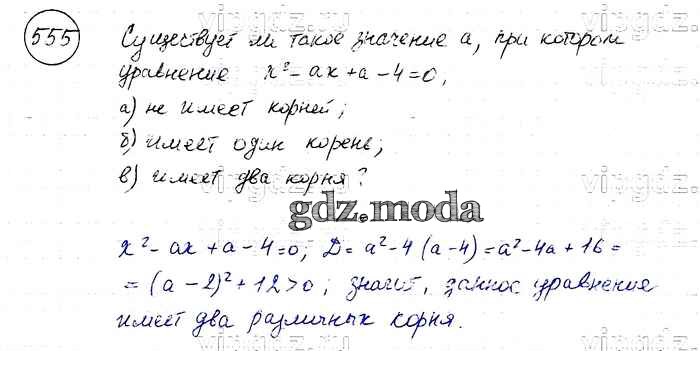 vipgdz.ru vipgdz.ru
555 Существует ли такое значение а, при котором
уравнение x² - ax + a - 4 = 0,
а) не имеет корней;
б) имеет один корень;
в) имеет два корня?
vipgdz.ru vipgdz.ru
gdz.moda
x² - ax + a - 4 = 0; D = a² - 4 (a - 4) = a² - 4a + 16 =
= (a - 2)² + 12 > 0; значит, данное уравнение
имеет два различных корня.
vipgdz.ru vipgdz.ru